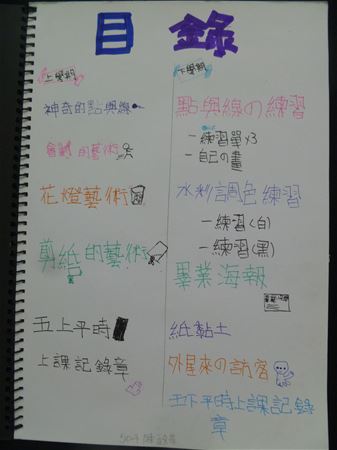 目錄
上學期
神奇的點與線
會動的藝術
花燈藝術
剪紙的藝術
五上平時
上課記錄章
下學期
點與線の練習
－練習單x3
－自己の畫
水彩調色練習
－練習(白)
－練習(黑)
畢業海報
紙黏土
外星來の訪客
五下平時上課記錄
章